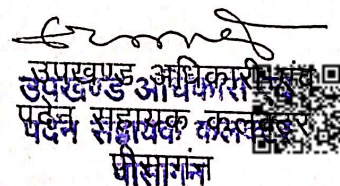 उपखण्ड अधिकारी एवं
पदेन सहायक कलक्टर
पीसांगन